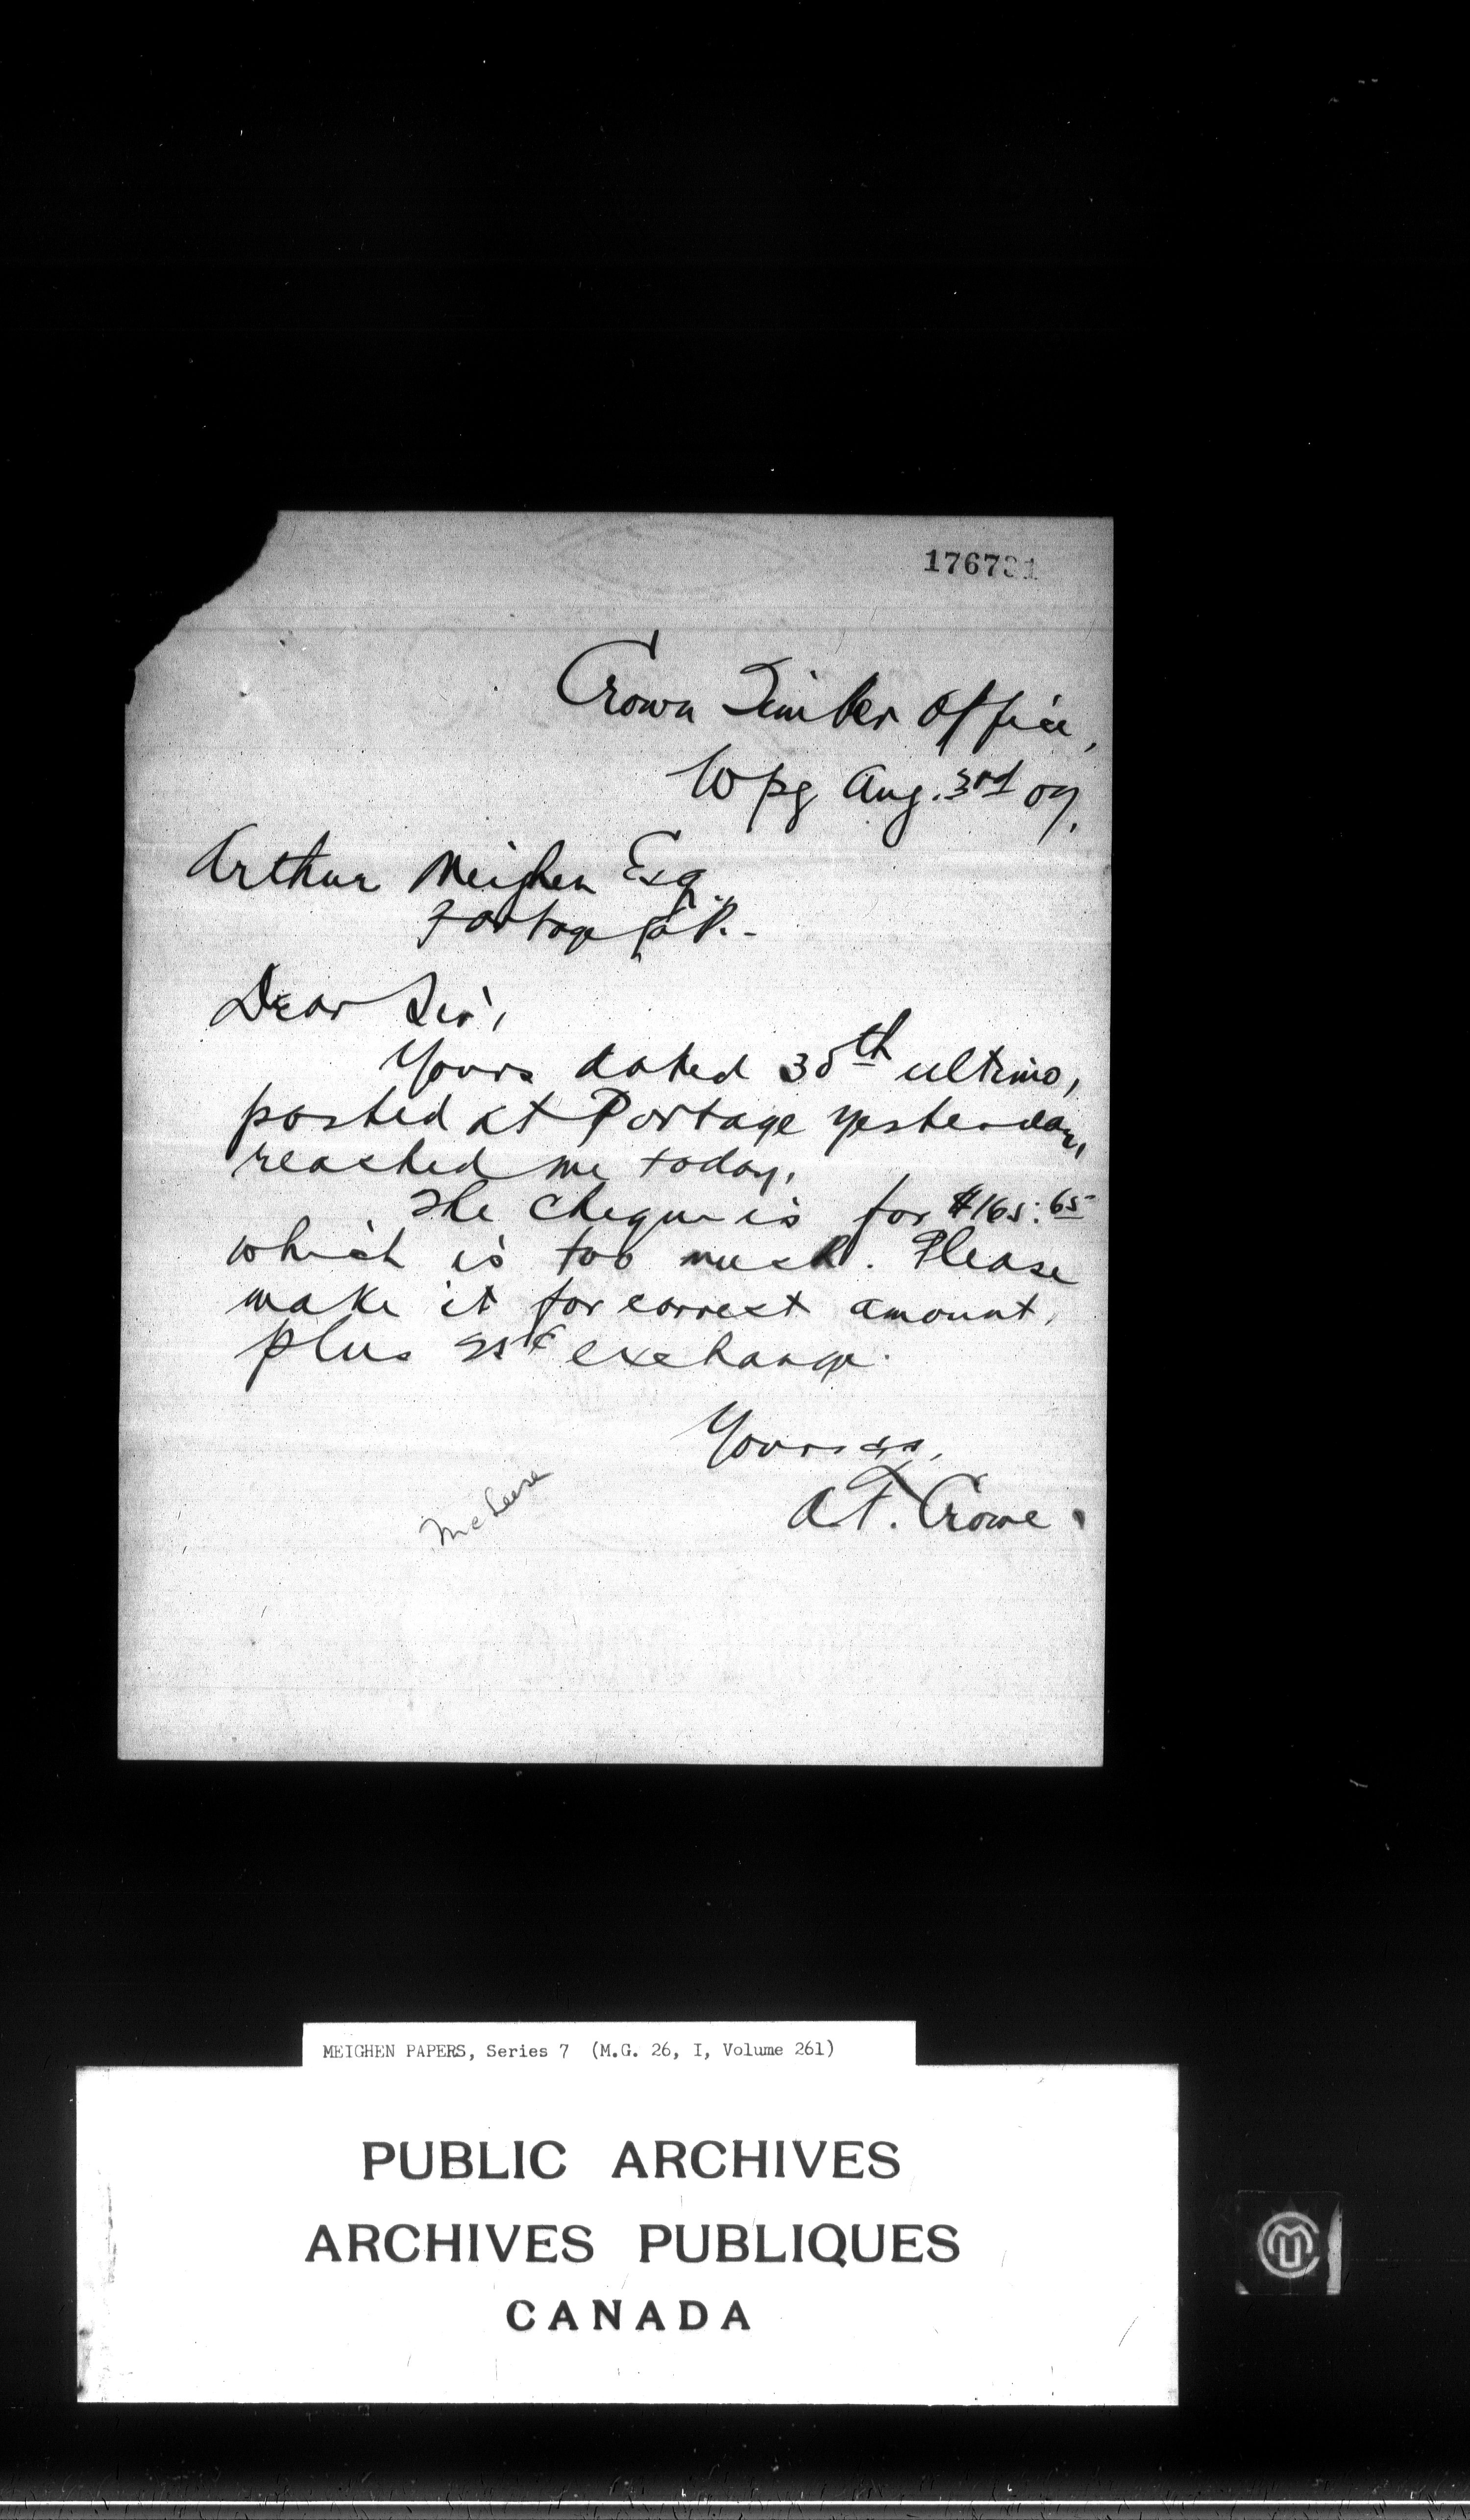 176731
Crown Timber Office,
Wpg Aug. 3rd 07.
Arthur Meighen Esq.
Portage la P.-
Dear Sir,
Yours dated 30th ultimo,
posted at Portage yesterday,
reached me today.
The cheque is for $165.65
which is too much. Please
make it for correct amount,
plus 25¢ exchange.
Yours
A.F. Crowe.
MEIGHEN PAPERS, Series 7 (M.G. 26, I, Volume 261)
PUBLIC ARCHIVES
ARCHIVES PUBLIQUES
CANADA